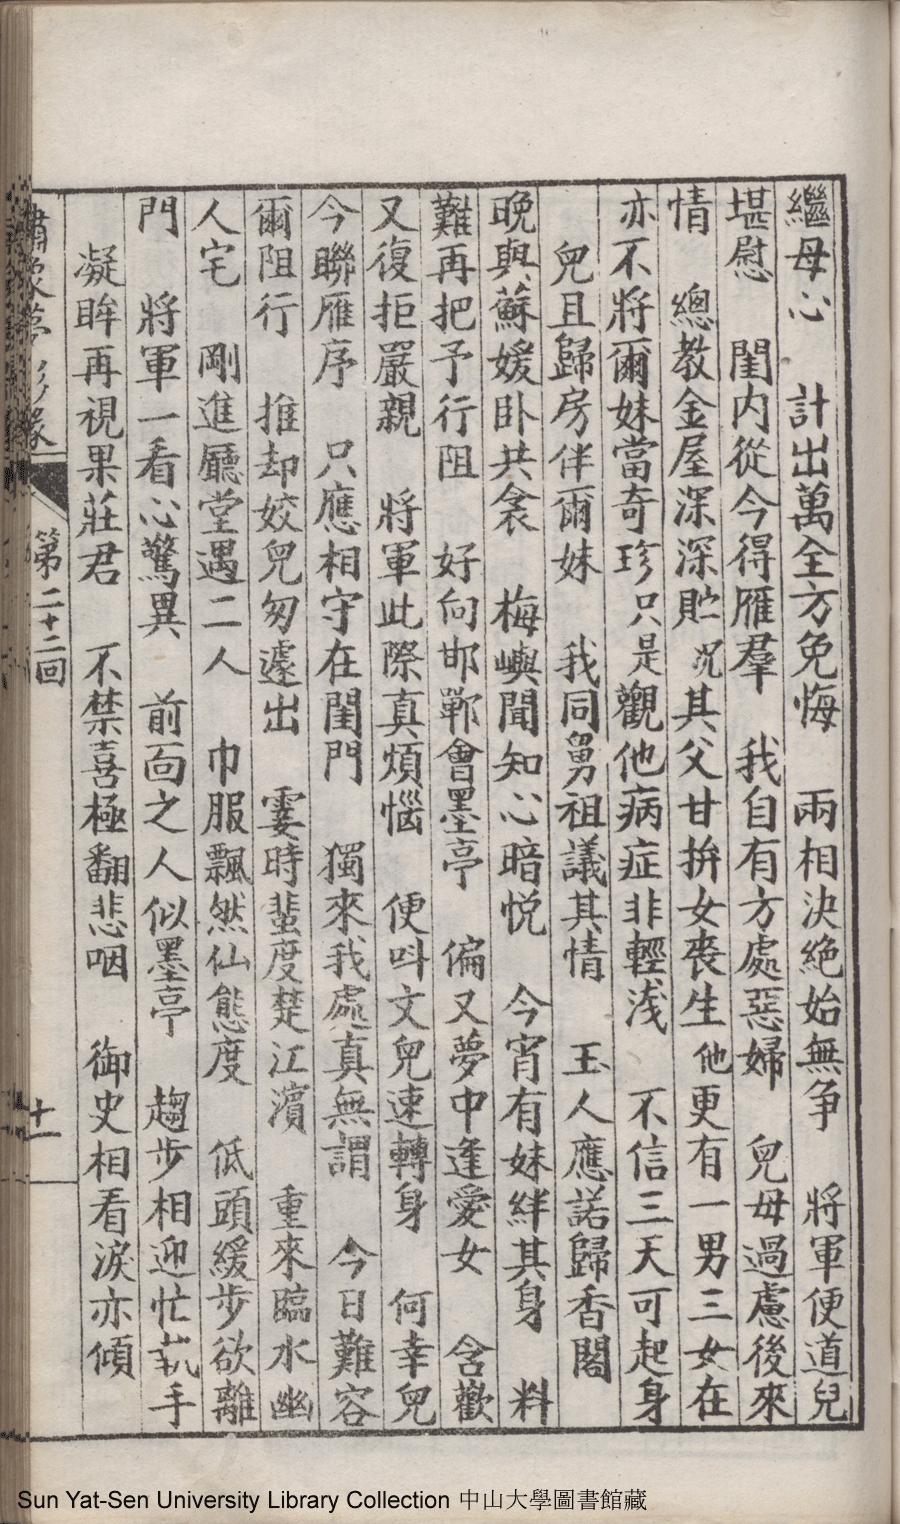 繼母心　計出萬全方免悔　兩相決絶始無争　將軍便道兒
堪慰　閨内從今得雁羣　我自有方處惡婦　兒母過慮後來
情　總教金屋深深貯　况其父甘拚女喪生　他更有一男三女在
亦不將爾妹當奇珍　只是觀他病症非輕浅　不信三天可起身
兒且歸房伴爾妹　我同舅祖議其情　玉人應諾歸香閣
晚與蘇媛卧共衾　梅嶼聞知心暗悦　今宵有妹絆其身　料
難再把予行阻　好向邯鄲會墨亭　偏又夢中逢愛女　含歡
又復拒嚴親　將軍此際真煩惱　便呌文兒速轉身　何幸兒
今聯雁序　只應相守在閨門　獨來我處真無謂　今日難容
爾阻行　推却姣兒匆遽出　霎時蜚度楚江濱　重來臨水幽
人宅　剛進廳堂遇二人　巾服飄然仙態度　低頭緩步欲離
門　將軍一看心驚異　前面之人似墨亭　趨步相迎忙執手
凝眸再視果莊君　不禁喜極翻悲咽　御史相看淚亦傾
第二十二回
十一
Sun Yat-Sen University Library Collection 中山大學圖書館藏